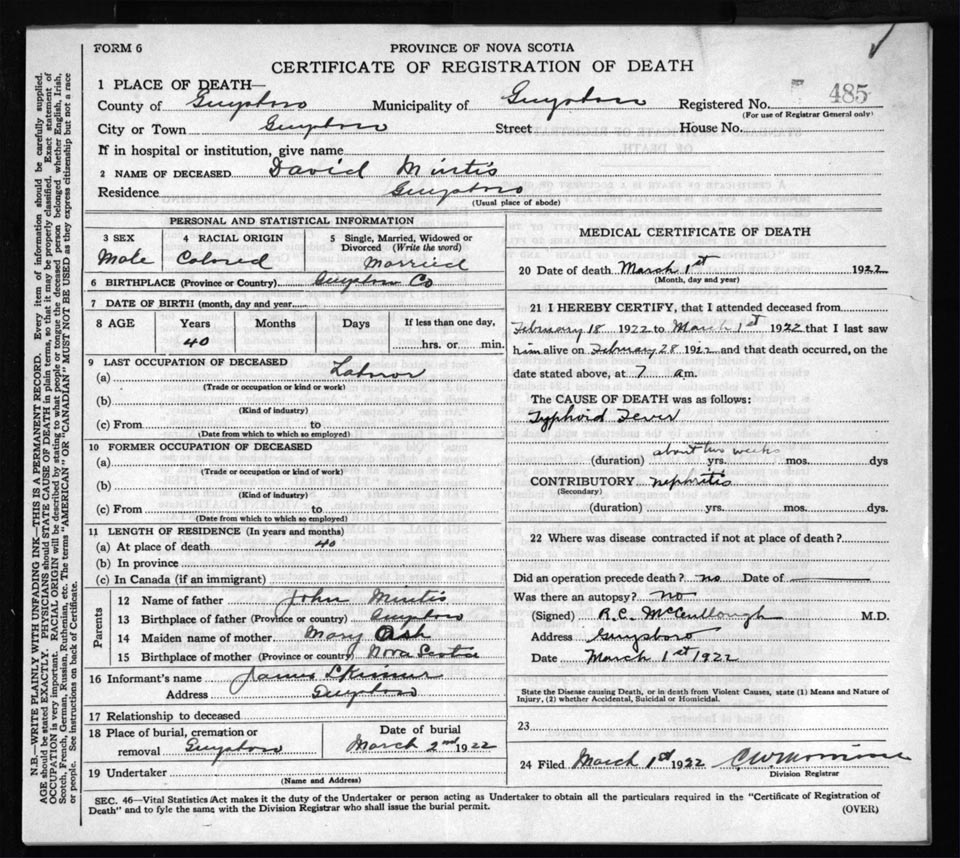 FORM 6
PROVINCE OF NOVA SCOTIA
CERTIFICATE OF REGISTRATION OF DEATH
1 PLACE OF DEATH—
County of Guysboro Municipality of Guysboro Registered No. 485
(For use of Registrar General only)
City or Town Guysboro Street House No.
If in hospital or institution, give name
2 NAME OF DECEASED David Mintis
Residence Guysboro
(Usual place of abode)
PERSONAL AND STATISTICAL INFORMATION
3 SEX 4 RACIAL ORIGIN 5 Single, Married, Widowed or
Divorced (Write the word)
Male Colored Married
6 BIRTHPLACE (Province or Country) Guysboro Co
7 DATE OF BIRTH (month, day and year)
8 AGE Years Months Days If less than one day,
40 hrs. or min.
9 LAST OCCUPATION OF DECEASED
(a) Laboror
(Trade or occupation or kind or work)
(b)
(Kind of industry)
(c) From to
(Date from which to which so employed)
10 FORMER OCCUPATION OF DECEASED
(a)
(Trade or occupation or kind of work)
(b)
(Kind of industry)
(c) From to
(Date from which to which so employed)
11 LENGTH OF RESIDENCE (In years and months)
(a) At place of death 40
(b) In province
(c) In Canada (if an immigrant)
Parents
12 Name of father John Mintis
13 Birthplace of father (Province or country) Guysboro
14 Maiden name of mother Mary Ash
15 Birthplace of mother (Province or country) Nova Scotia
16 Informant's name James Skinner
Address Guysboro
17 Relationship to deceased
18 Place of burial, cremation or Date of burial
removal Guysboro March 2nd 1922
19 Undertaker
(Name and Address)
MEDICAL CERTIFICATE OF DEATH
20 Date of death March 1st 1922
(Month, day and year)
21 I HEREBY CERTIFY, that I attended deceased from
February 18 1922 to March 1st 1922 that I last saw
him alive on February 28 1922 and that death occurred, on the
date stated above, at 7 a.m.
The CAUSE OF DEATH was as follows:
Typhoid Fever
about two weeks
(duration) yrs. mos. dys
CONTRIBUTORY nephritis
(Secondary)
(duration) yrs. mos. dys.
22 Where was disease contracted if not at place of death?
Did an operation precede death? no Date of
Was there an autopsy? no
(Signed) R.C. McCullough M.D.
Address Guysboro
Date March 1st 1922
State the Disease causing Death, or in death from Violent Causes, state (1) Means and Nature of
Injury, (2) whether Accidental, Suicidal or Homicidal.
23
24 Filed March 1st 1922 C W Morrison
Division Registrar
SEC. 46—Vital Statistics Act makes it the duty of the Undertaker or person acting as Undertaker to obtain all the particulars required in the "Certificate of Registration of
Death" and to fyle the same with the Division Registrar who shall issue the burial permit. (OVER)
N.B.—WRITE PLAINLY WITH UNFADING INK—THIS IS A PERMANENT RECORD. Every item of information should be carefully supplied.
AGE should be stated EXACTLY. PHYSICIANS should STATE CAUSE OF DEATH in plain terms, so that it may be properly classified. Exact statement of
OCCUPATION is very important. RACIAL ORIGIN will be described by stating to what people or tongue the deceased person belonged whether English, Irish,
Scotch, French, German, Russian, Ruthenian, etc. The terms "AMERICAN" OR "CANADIAN" MUST NOT BE USED as they express citizenship but not a race
or people. See instructions on back of Certificate.